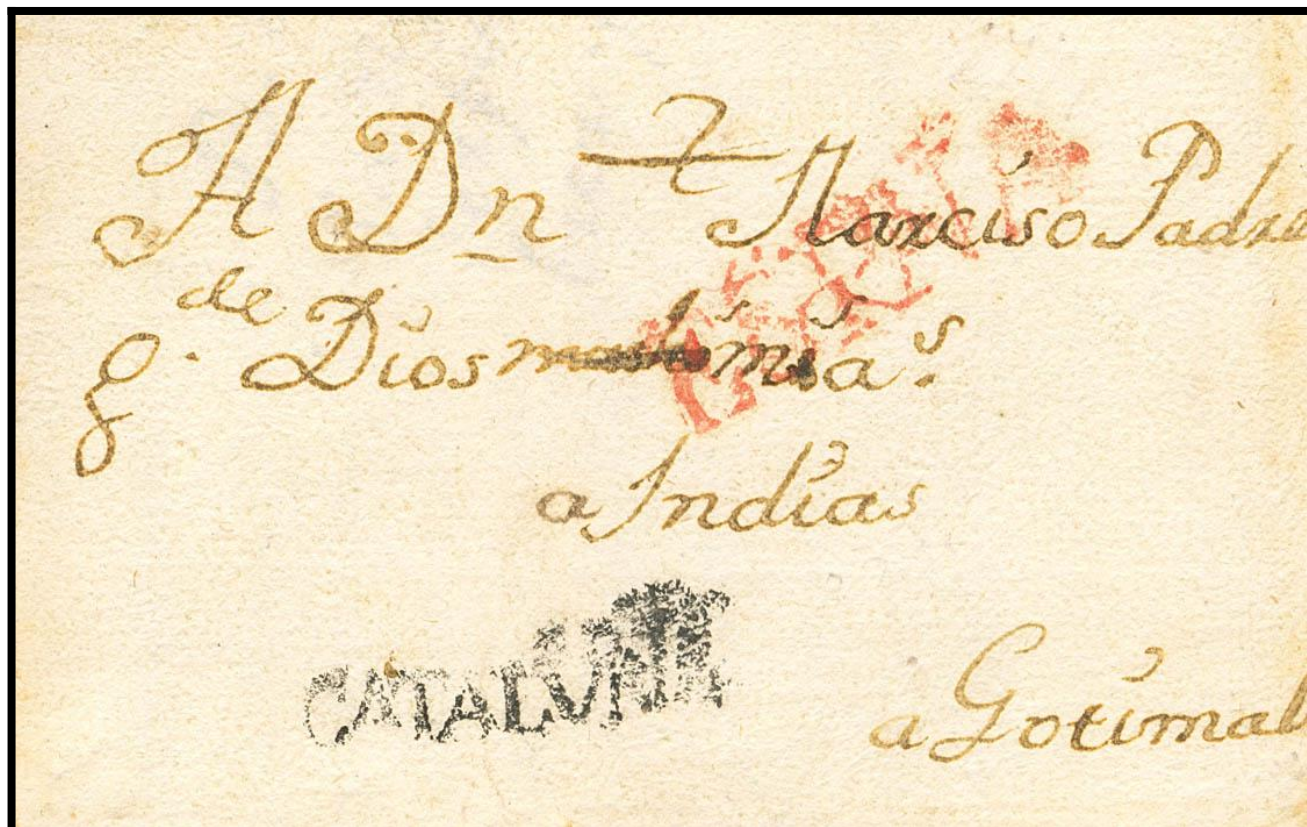 A Dn Narciso Padre
g.de Dios a.s
a Indias
CATALUÑA
a Gotimal